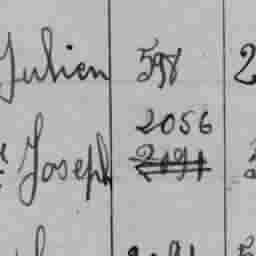 Julien 598 2
2056
Joseph 2191